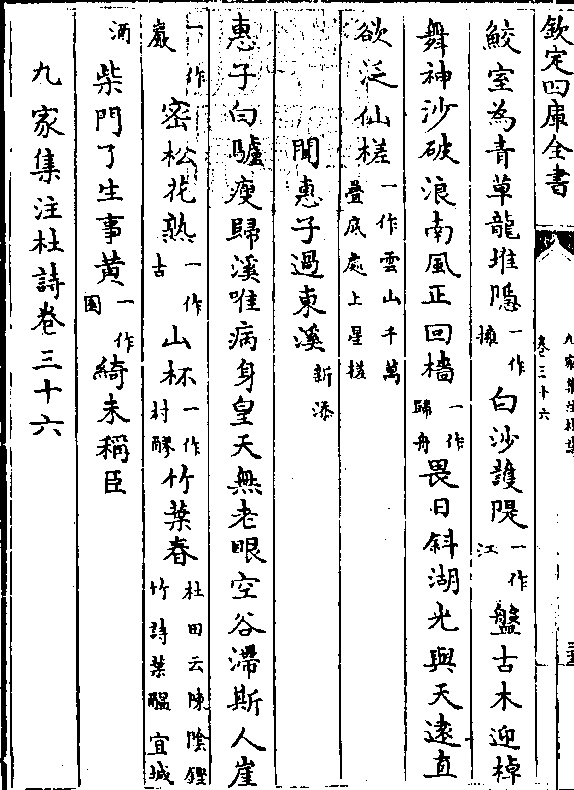 欽定四庫全書
卷三十六
鮫室為青草龍堆隱一作擁白沙護隄一作江盤古木迎棹
舞神沙破浪南風正回檣一作歸舟畏日斜湖光與天遠直
欲泛仙槎一作雲山千萬疊底處上星槎
聞惠子過東溪新添
惠子白驢瘦歸溪唯病身皇天無老眼空谷滯斯人崖
一作巖密松花熟一作古山杯一作村醪竹葉春杜田云陳陰鏗詩竹葉醖宜城
酒柴門了生事黄一作園綺未稱臣
九家集注杜詩卷三十六